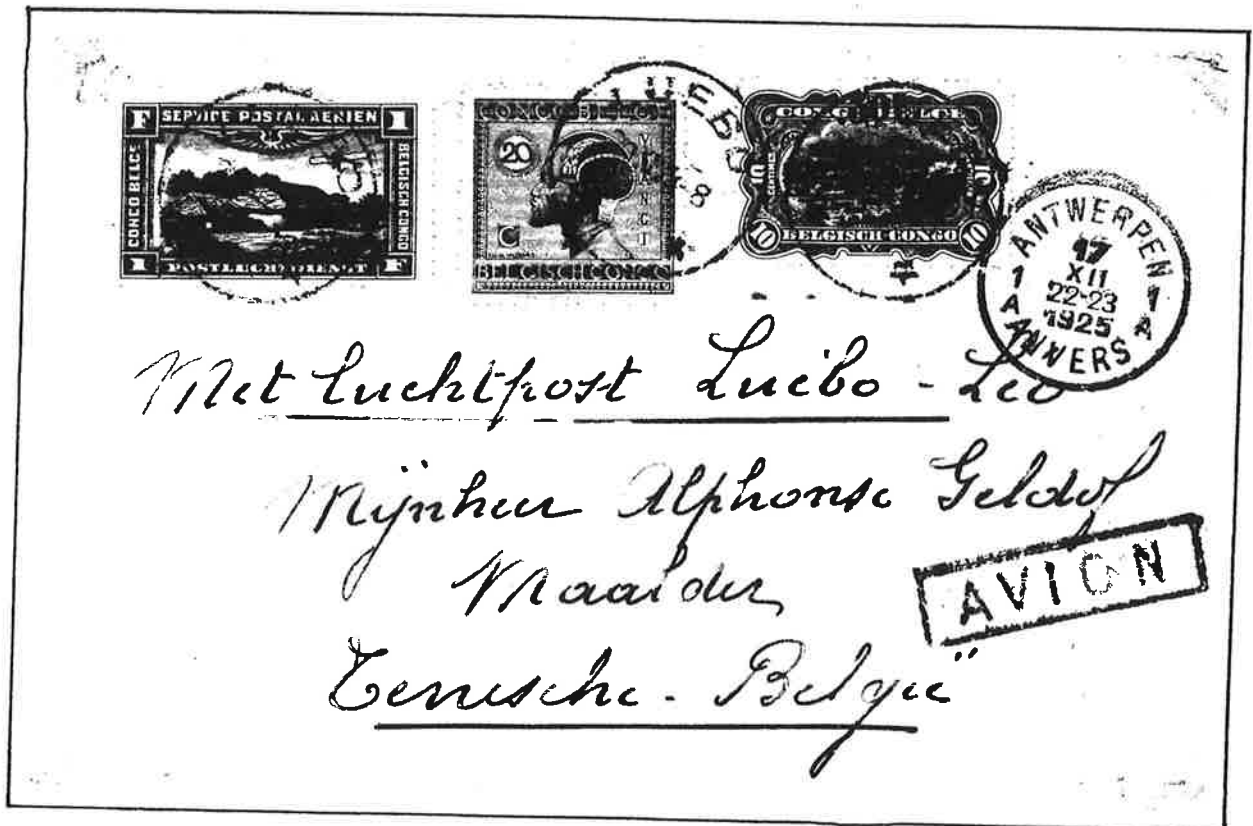 F SERVICE POSTAL AERIEN 1
CONGO BELGE
BELGISCH CONGO
1 POSTLUCHTDIENST F
CONGO BELGE
20
VINGT
C
BELGISCH CONGO
LUEBO
8
10
CONGO BELGE
10
10
10 BELGISCH CONGO 10
ANTWERPEN
17
XII
22-23
1925
1 A
1 A
ANVERS
Met Luchtpost Luebo - Leo
Mijnheer Alphonse Geldof
AVION
Temsche - België